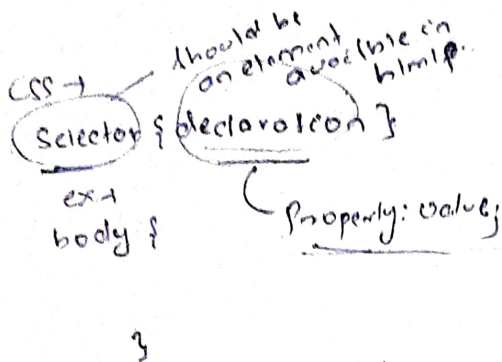 should be
an element
available in
html.
CSS →
Selector { declaration }
ex →
body {
Property: value;
}